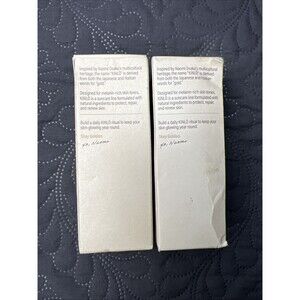 Inspired by Naomi Osaka's multicultural
heritage, the name "KINLÒ" is derived
from both the Japanese and Haitian
words for "gold".
Designed for melanin-rich skin tones,
KINLÒ is a suncare line formulated with
natural ingredients to protect, repair,
and renew skin.
Build a daily KINLÒ ritual to keep your
skin glowing year round.
Stay Golden
xo, Naomi
Inspired by Naomi Osaka's multicultural
heritage, the name "KINLÒ" is derived
from both the Japanese and Haitian
words for "gold".
Designed for melanin-rich skin tones,
KINLÒ is a suncare line formulated with
natural ingredients to protect, repair,
and renew skin.
Build a daily KINLÒ ritual to keep your
skin glowing year round.
Stay Golden
xo, Naomi